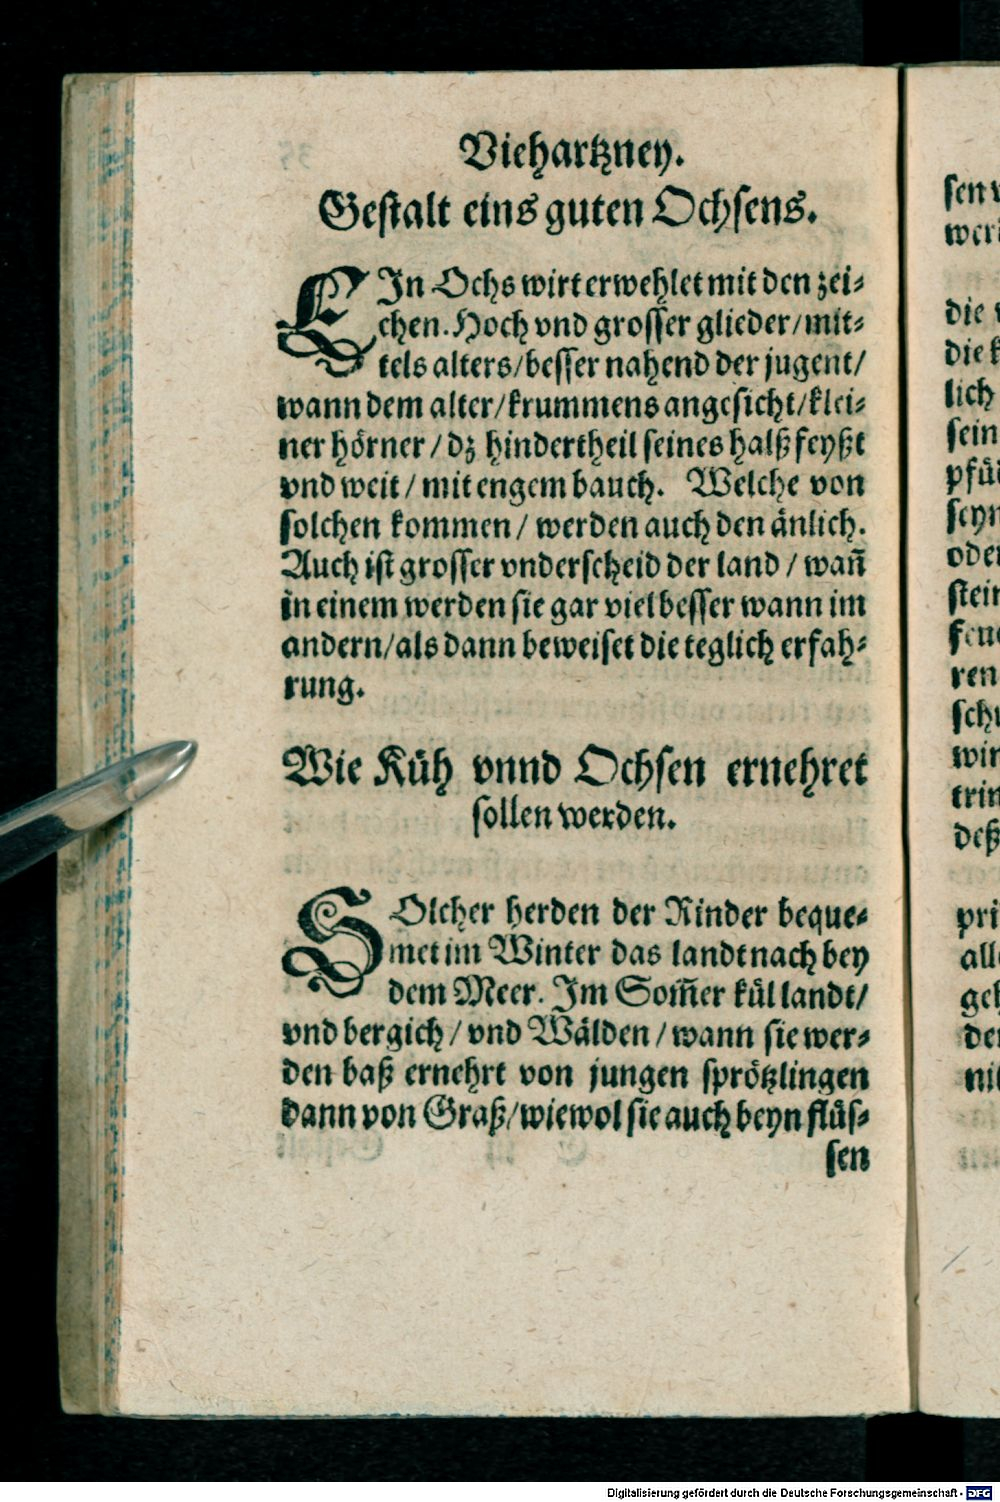 Viehartzney.
Gestalt eins guten Ochsens.
EIn Ochs wirt erwehlet mit den zei⸗
chen. Hoch vnd grosser glieder/mit⸗
tels alters/besser nahend der jugent/
wann dem alter/krummens angesicht/klei⸗
ner hörner/dz hindertheil seines halß feyßt
vnd weit/mit engem bauch. Welche von
solchen kommen/werden auch den änlich.
Auch ist grosser vnderscheid der land/wañ
in einem werden sie gar viel besser wann im
andern/als dann beweiset die teglich erfah⸗
rung.
Wie Küh vnnd Ochsen ernehret
sollen werden.
SOlcher herden der Rinder beque⸗
met im Winter das landt nach bey
dem Meer. Im Som̃er kül landt/
vnd bergich/vnd Wälden/wann sie wer⸗
den baß ernehrt von jungen sprötzlingen
dann von Graß/wiewol sie auch beyn flüs⸗
sen
sen
die
die
lich
sein
oder
ren
deß
Digitalisierung gefördert durch die Deutsche Forschungsgemeinschaft - DFG